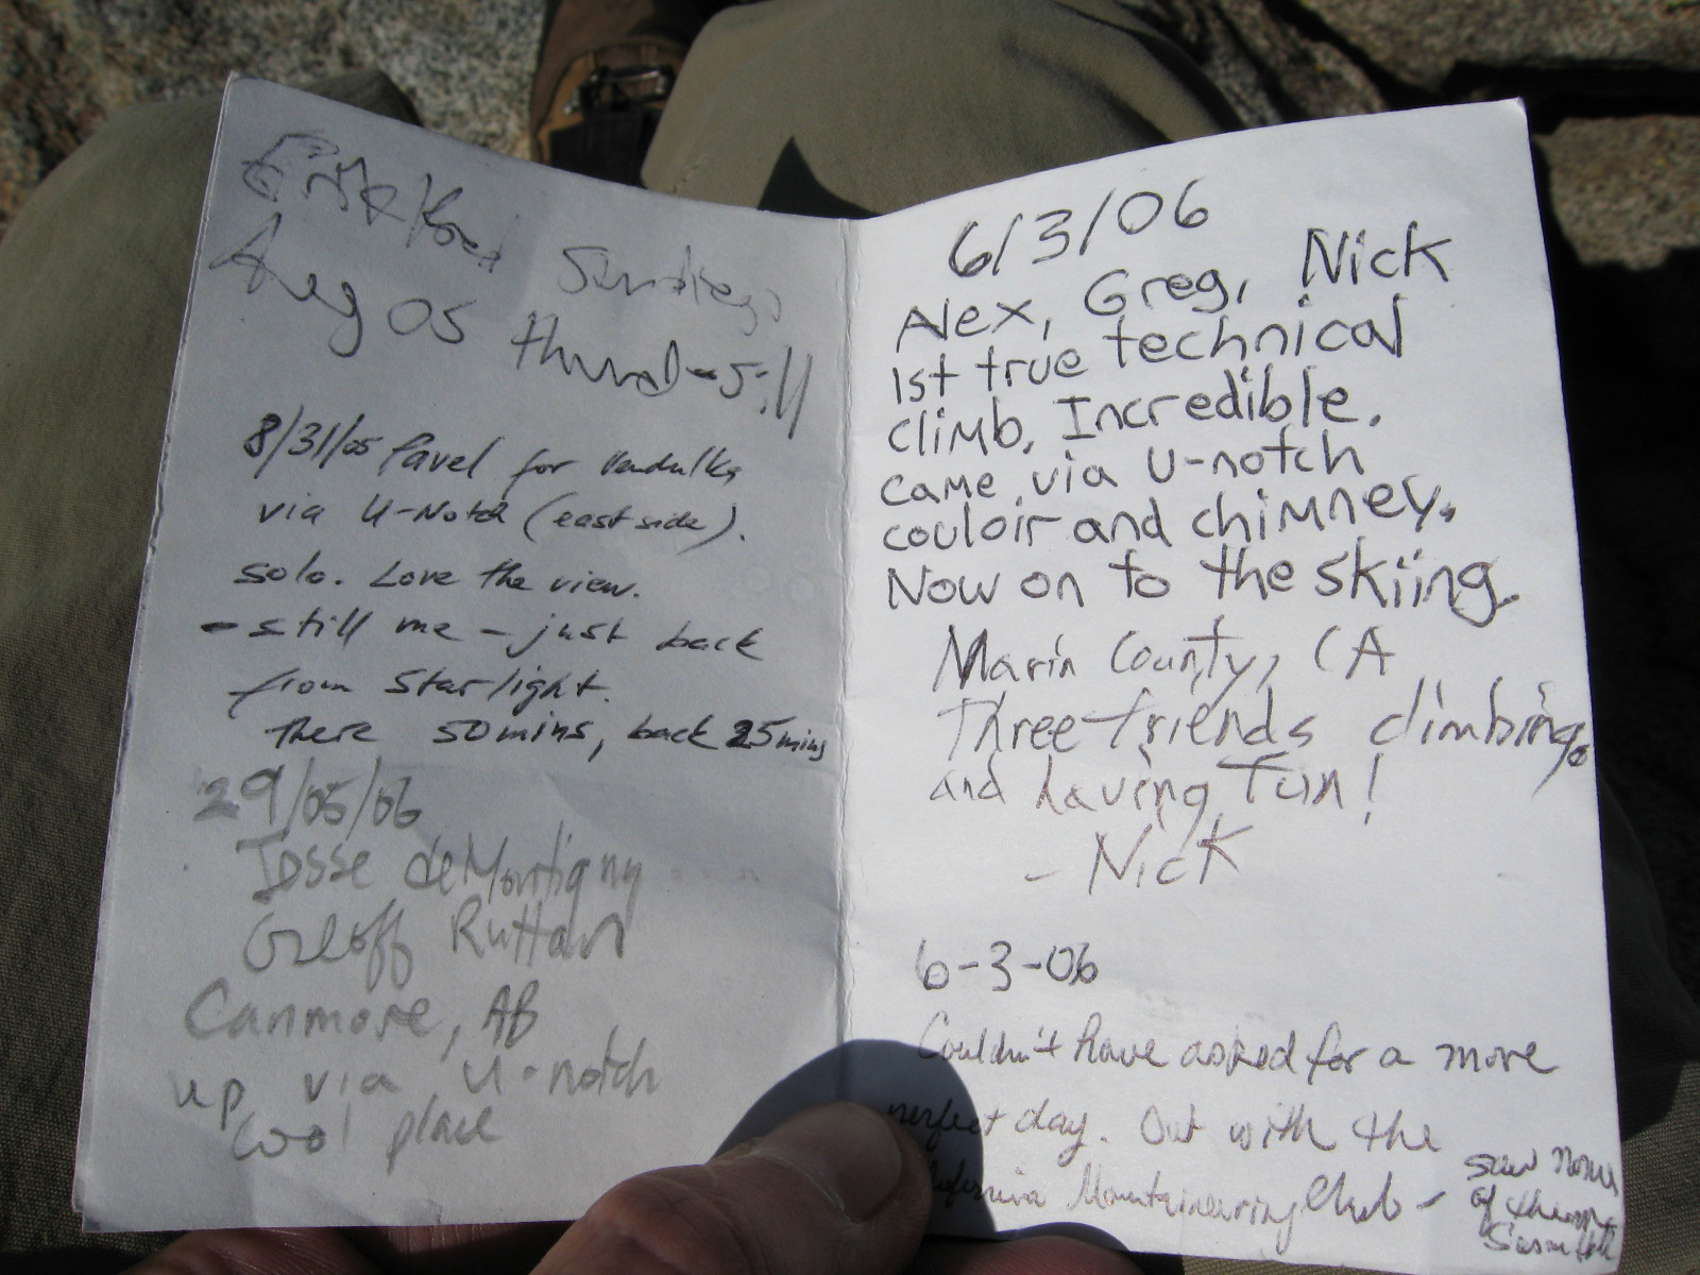 Aug 05
8/31/05 Pavel for
via U-Notch (east side).
solo. Love the view.
- still me - just back
from Starlight.
there 50 mins, back 25 mins
29/05/06
Josse deMontigny
Geoff Ruttan
Canmore, AB
up via U-notch
Cool place
6/3/06
Alex, Greg, Nick
1st true technical
climb. Incredible.
came via U-notch
couloir and chimney.
Now on to the skiing.
Marin County, CA
Three friends climbing
and having fun!
- Nick
6-3-06
Couldn't have asked for a more
perfect day. Out with the
California Mountaineering Club -
saw none
of them